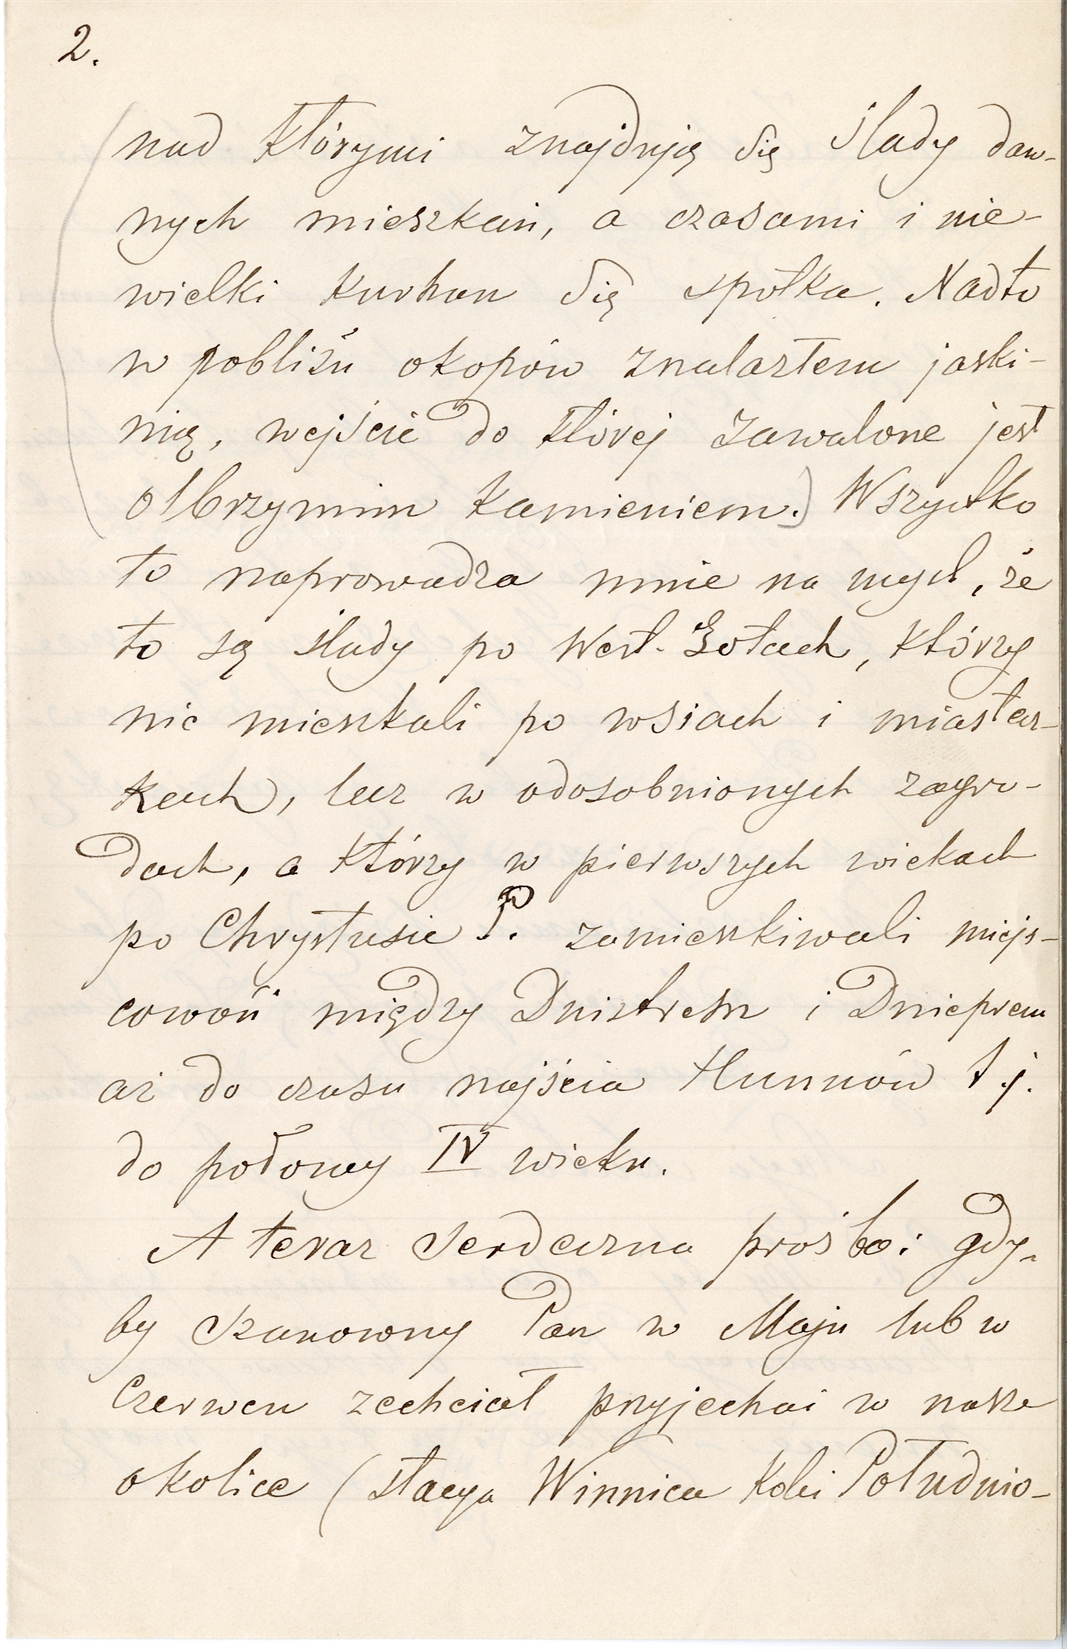 2.
nad którymi znajdują się ślady daw-
nych mieszkań, a czasami i nie-
wielki kurhan się spotka. Nadto
w pobliżu okopów znalazłem jaski-
nię, wejście do której zawalone jest
olbrzymim kamieniem.) Wszystko
to naprowadza mnie na myśl, że
to są ślady po West-Gotach, którzy
nie mieszkali po wsiach i miastecz-
kach, lecz w odosobnionych zagro-
dach, a którzy w pierwszych wiekach
po Chrystusie P. zamieszkiwali miejs-
cowość między Dnistrem i Dnieprem
aż do czasu najścia Hunnów t.j.
do połowy IV wieku.
A teraz serdeczna prośba: gdy-
by Szanowny Pan w Maju lub w
Czerwcu zechciał przyjechać w nasze
okolice (stacya Winnica Kolei Południo-